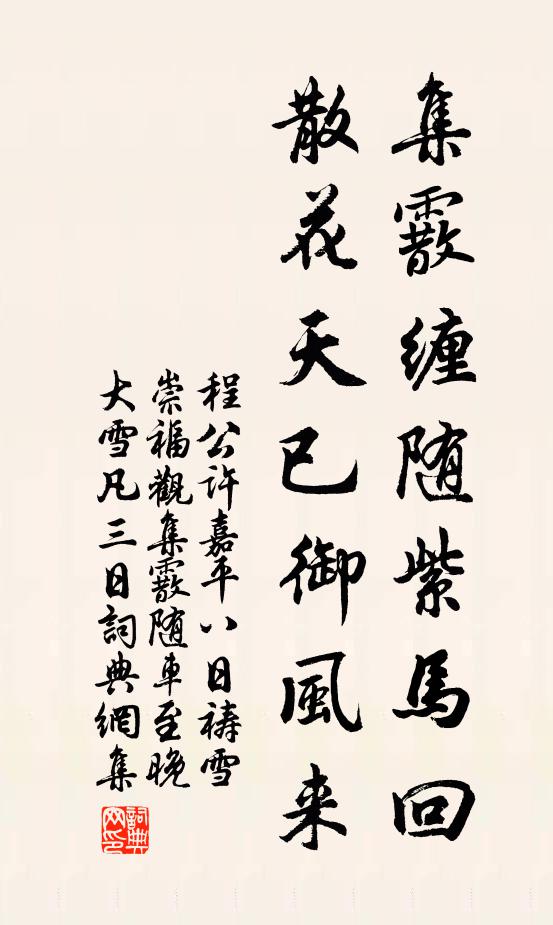 集霰缠随紫馬回
散花天已御風来
程公许嘉平八日禱雪
崇福觀集霰随車至晚
大雪凡三日詞典網集
詞典
网印